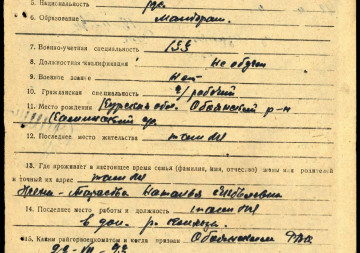 5. Национальность рус.
6. Образование Малограм.
7. Военно-учетная специальность 133
8. Должностная квалификация Не обучен
9. Военное звание Нет
10. Гражданская специальность ч/рабочий
11. Место рождения Курская обл. Обоянский р-н
12. Последнее место жительства там же
13. Где проживает в настоящее время семья (фамилия, имя, отчество) жены или родителей
и точный их адрес там же
Жена - Наталья
14. Последнее место работы и должность там же
в
15. Каким райгорвоенкоматом и когда призван Обоянским РВК